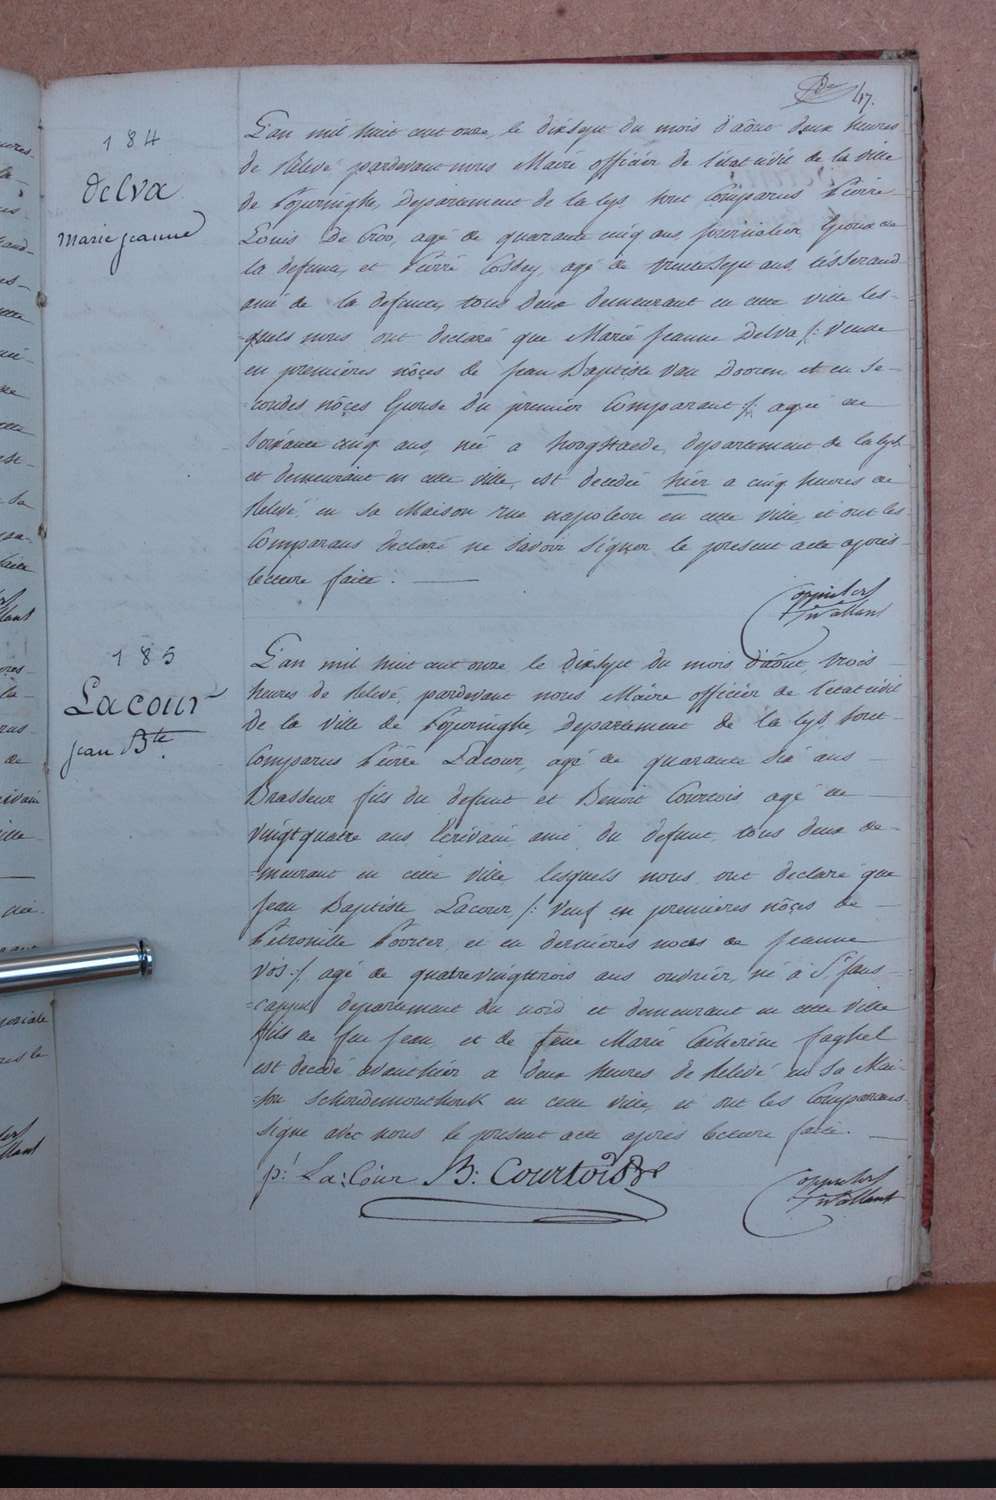 47.
184
Delva
Marie Jeanne
L'an mil huit cent onze, le dixsept du mois d'aôut deux heures
de Relevé, pardevant nous Maire officier de l'état civil de la ville
de Poperinghe, Departement de la Lys sont Comparus Pierre
Louis De Croo, agé de quarante cinq ans, journalier Epoux de
la defunte, et Pierre Cossey, agé de trentesept ans, tisserand
ami de la defunte, tous deux demeurant en cette ville les-
-quels nous ont declaré que Marie Jeanne Delva /: Veuve
en premières nôçes de Jean Baptiste Van Dooren et en Se-
-condes nôçes Epouse du premier Comparant :/ agée de
Soixante cinq ans, née a hooghstaede, departement de la Lys
et demeurant en cette ville, est decedée hier a cinq heures de
Relevé en sa Maison rue napoleon en cette ville, et ont les
Comparans declaré ne Savoir Signer le present acte après
lecture faite. —
185
Lacour
Jean Bte
L'an mil huit cent onze le dixsept du mois d'aôut, trois
heures de Relevé, pardevant nous Maire officier de l'etat civil
de la ville de Poperinghe, Departement de la Lys, sont
Comparus Pierre Lacour, agé de quarante Six ans
Brasseur fils du defunt et Benoit Courtois agé de
vingtquatre ans Ecrivain ami du defunt, tous deux de-
-meurant en cette ville, lesquels nous ont declaré que
Jean Baptiste Lacour /: Veuf en premieres nôçes de
Petronille Poorter et en dernieres noces de Jeanne
Vos :/ agé de quatrevingttrois ans ouvrier, né à St Jans
-cappel departement du nord et demeurant en cette ville
fils de feu Jean, et de feue Marie Catherine faghel
est decedé avanthier a deux heures de Relevé en Sa Mai-
-son Schoudemonthouk en cette ville, et ont les Comparans
Signé avec nous le present acte après lecture faite. —
p: La:Cour B: Courtois